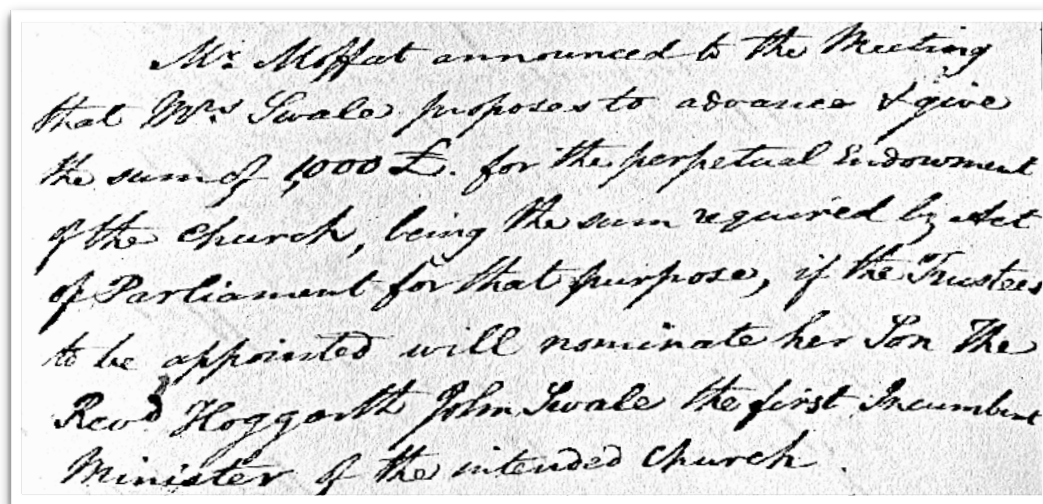 Mr. Moffat announced to the Meeting
that Mrs Swale proposes to advance & give
the sum of 1,000 £. for the perpetual Endowment
of the Church, being the sum required by Act
of Parliament for that purpose, if the Trustees
to be appointed will nominate her Son The
Revd. Hoggarth John Swale the first Incumbent
Minister of the intended Church.